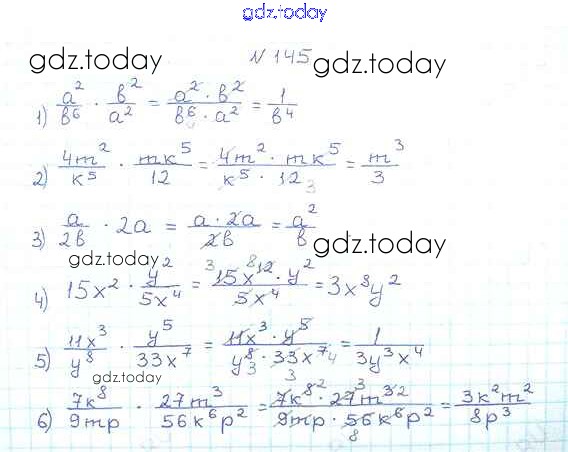 gdz.today
gdz.today
N 145
gdz.today
1) a²/b⁶ · b²/a² = a²·b²/b⁶·a² = 1/b⁴
2) 4m²/k⁵ · mk⁵/12 = 4m²·mk⁵/k⁵·12 3 = m³/3
3) a/2b · 2a = a·2a/2b = a²/b
gdz.today
gdz.today
4) 15x² · y²/5x⁴ = 3 15x⁸ ¹²·y²/5x⁴ = 3x⁸y²
5) 11x³/y⁸ · y⁵/33x⁷ = 11x³·y⁵/y⁸ 3·33x⁷ 4 3 = 1/3y³x⁴
gdz.today
6) 7k⁸/9mp · 27m³/56k⁶p² = 7k⁸ ²·27 ³m³ ²/9mp·56k⁶p² 8 = 3k²m²/8p³